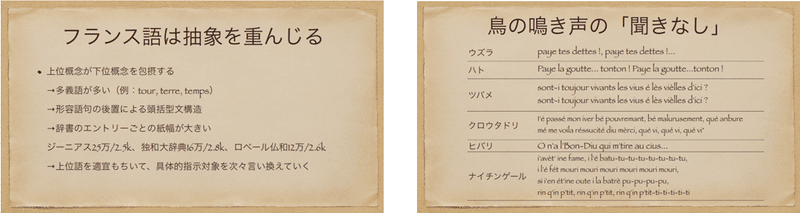 フランス語は抽象を重んじる
• 上位概念が下位概念を包摂する
→多義語が多い（例：tour, terre, temps）
→形容語句の後置による頭括型文構造
→辞書のエントリーごとの紙幅が大きい
ジーニアス25万/2.5k、独和大辞典16万/2.8k、ロベール仏和12万/2.6k
→上位語を適宜もちいて、具体的指示対象を次々言い換えていく
鳥の鳴き声の「聞きなし」
ウズラ paye tes dettes !, paye tes dettes !...
ハト Paye la goutte... tonton ! Paye la goutte...tonton !
ツバメ sont-i toujour vivants les vius é lès vièlles d'ici ?
sont-i toujour vivants les vius é lès vièlles d'ici ?
クロウタドリ l'é passé mon iver bé pouvremant, bé malurusement, qué anbure
mé me voila réssucité diu mèrci, qué vi, qué vi, qué vi"
ヒバリ O n'a l'Bon-Diu qui m'tire au cius...
ナイチンゲール i'avèt' ine fame, i l'é batu-tu-tu-tu-tu-tu-tu-tu,
i l'é fét mouri mouri mouri mouri mouri mouri,
si i'en ét'ine oute i la batrè pu-pu-pu-pu,
rin q'in p'tit, rin q'in p'tit, rin q'in p'tit-ti-ti-ti-ti-ti